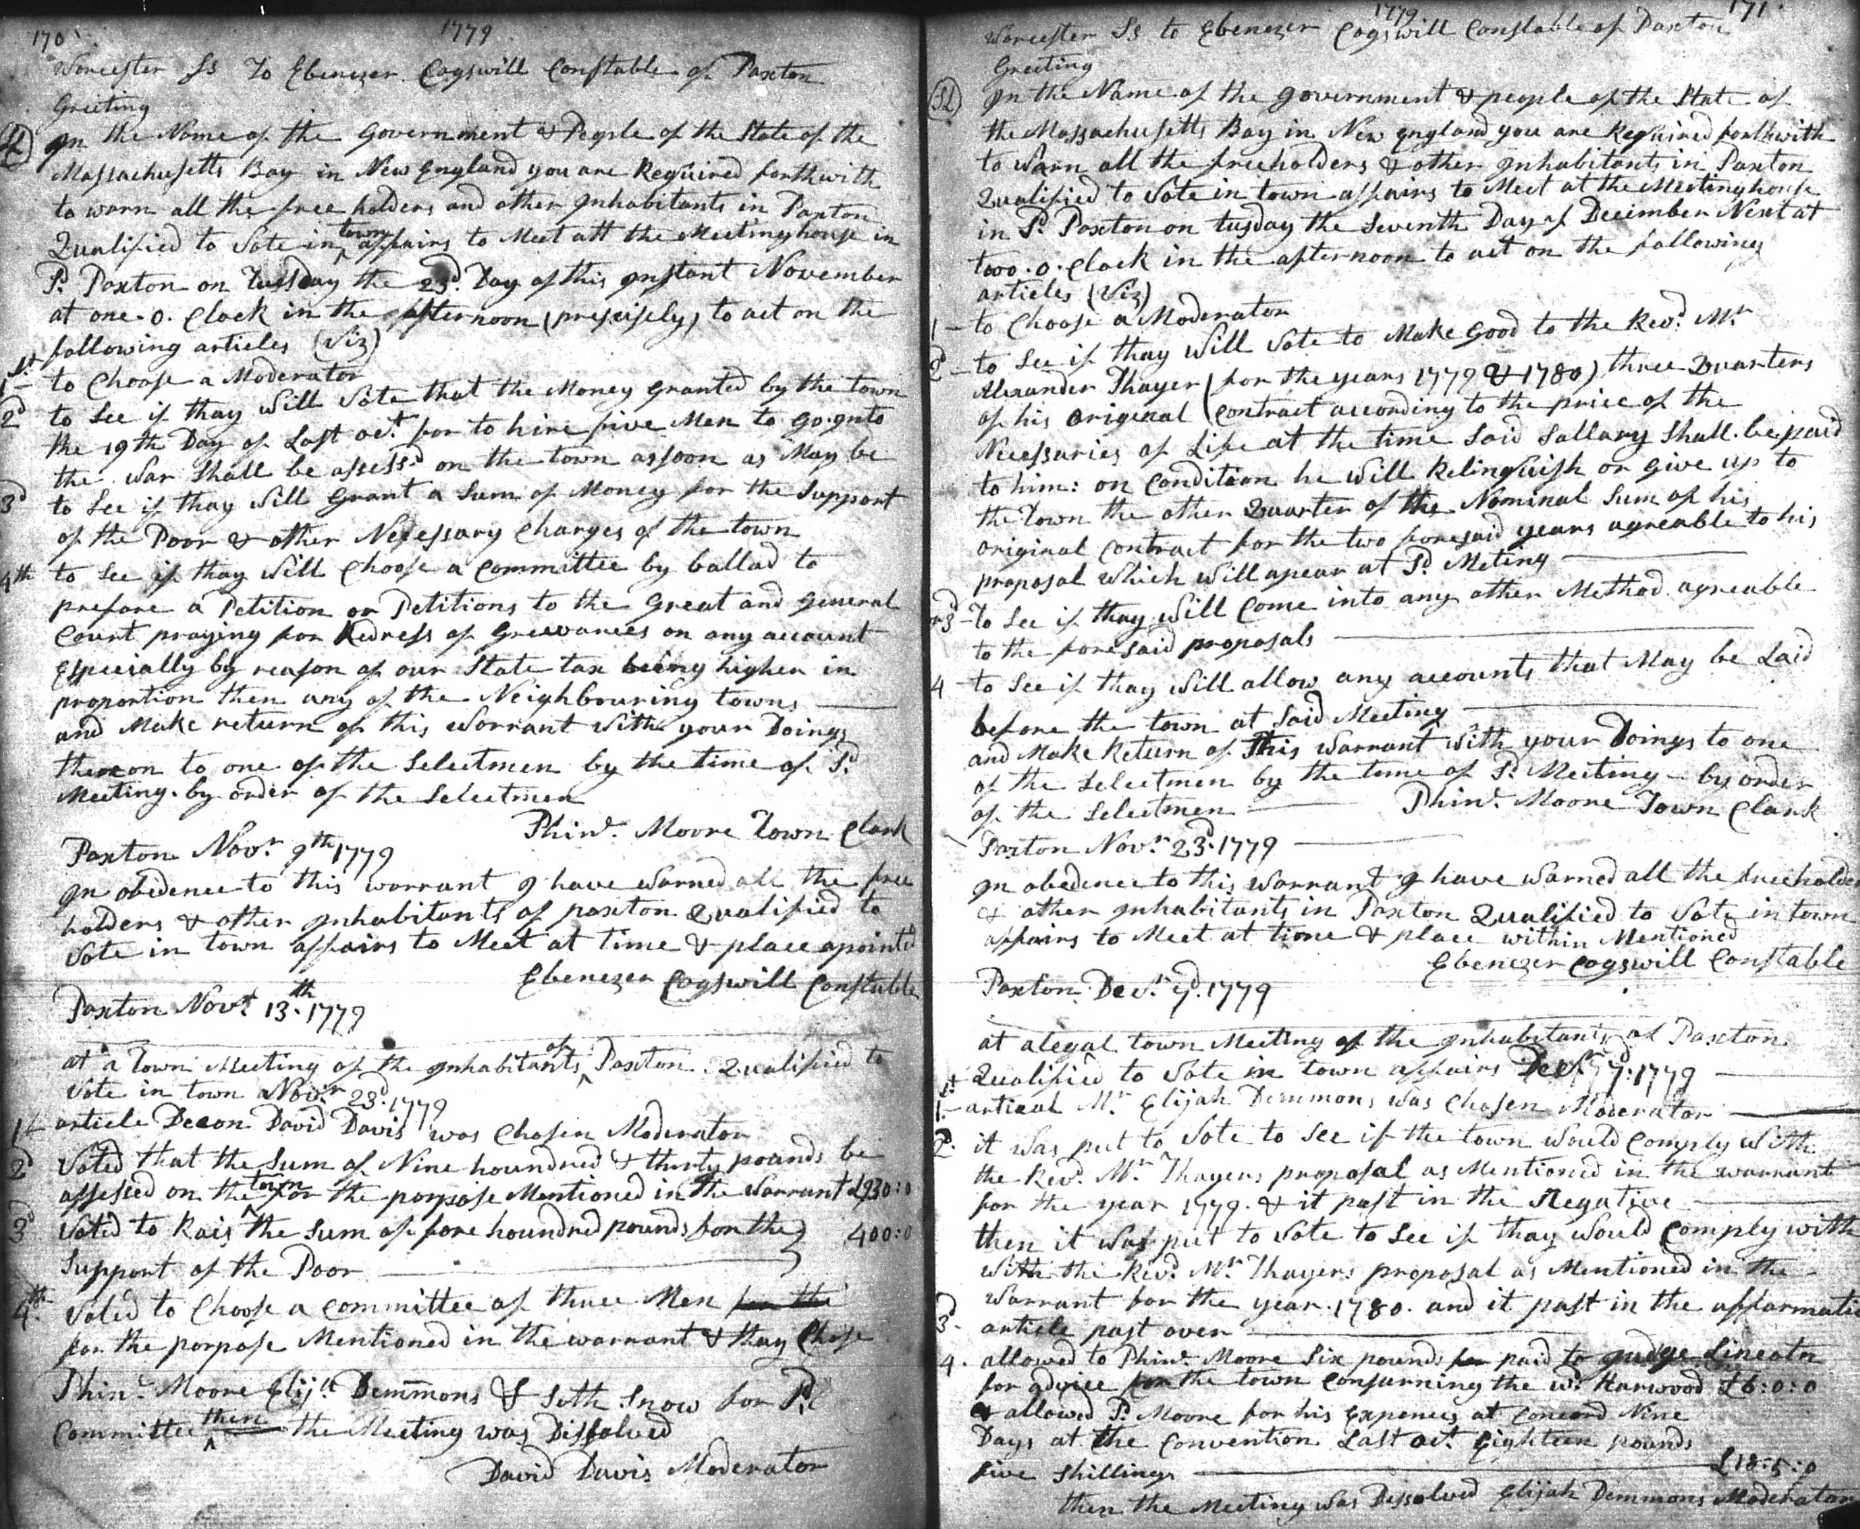 170
1779
Worcester Ss To Ebenezer Cogswill Constable of Paxton
Greeting
In the Name of the Government & People of the State of the
Massachusetts Bay in New England you are Required forthwith
to warn all the free holders and other Inhabitants in Paxton
Qualified to Vote in town affairs to Meet att the Meetinghouse in
Sd. Paxton on Tusday the 23d. Day of this Instant November
at one. o. Clock in the afternoon (presisely) to act on the
following articles (Viz)
1st to Choose a Moderator
2d to See if thay will Vote that the Money granted by the town
the 19th Day of Last Oct. for to hire five Men to go into
the war Shall be assessd. on the town assoon as May be
3d to See if thay will Grant a Sum of Money for the Support
of the Poor & other Nessesary Charges of the town
4th to See if thay will Choose a Committee by ballad to
prefare a Petition or Petitions to the Great and General
Court praying for Redress of Greevances on any account
Especially by reason of our State tax being higher in
proportion then any of the Neighbouring towns
and Make return of this warrant with your Doings
thereon to one of the Selectmen by the time of Sd.
Meeting. by order of the Selectmen
Phins. Moore Town Clark
Paxton Novr. 9th 1779
In obedence to this warrant I have warned all the free
holders & other Inhabitants of paxton Qualified to
Vote in town affairs to Meet at time & place apointed
Ebenezer Cogswill Constable
Paxton Novr. 13th. 1779
at a Town Meeting of the Inhabitants of Paxton Qualified to
Vote in town Novr. 23d. 1779
1st article Decon David Davis was Chosen Moderator
2d Voted that the Sum of Nine houndred & thirty pounds be
assessed on the town for the porpose Mentioned in the Warrant £930:0
3d Voted to Rais the Sum of fore houndred pounds for the 400:0
Support of the Poor
4th. Voted to Choose a Committee of three Men for the
for the porpose Mentioned in the warrant & thay Chose
Phins. Moore Elijh Demmons & Seth Snow for Sd.
Committee then the Meeting was Dissolved
David Davis Moderator
171
1779
Worcester Ss to Ebenezer Cogswill Constable of Paxton
Greeting
In the Name of the Government & people of the State of
the Massachusetts Bay in New England you are Required forthwith
to warn all the freeholders & other Inhabitants in Paxton
Qualified to Vote in town affairs to Meet at the Meetinghouse
in Sd. Paxton on tusday the Seventh Day of December Next at
two. o. Clock in the afternoon to act on the following
articles (Viz)
1 - to Choose a Moderator
2d - to See if thay will Vote to Make Good to the Revd. Mr
Alexander Thayer (for the years 1779 & 1780) three Quarters
of his original Contract according to the price of the
Necessaries of Life at the time Said Sallary Shall. be paid
to him: on Condition he will Relinguish or give up to
the Town the other Quarter of the Nominal Sum of his
original Contract for the two foresaid years agreable to his
proposal which will apear at Sd. Meting
3d - To See if thay will Come into any other Method agreable
to the foresaid proposals
4 - to See if thay will allow any accounts that May be Laid
before the town at Said Meeting
and Make Return of this warrant with your Doings to one
of the Selectmen by the time of Sd. Meeting - by order
of the Selectmen
Phins. Moore Town Clark
Paxton Novr. 23d. 1779
In obedence to this warrant I have warned all the freeholders
& other Inhabitants in Paxton Qualified to Vote in town
affairs to Meet at time & place within Mentioned
Ebenezer Cogswill Constable
Paxton Decr. 7d. 1779
at a legal town Meeting of the Inhabitants of Paxton
Qualified to Vote in town affairs Decr. 7d. 1779
1st - articul Mr. Elijah Demmons was Chosen Moderator
2d. it was put to Vote to See if the town would Comply with
the Revd. Mr. Thayers proposal as Mentioned in the warrant
for the year 1779. & it past in the Negative
then it was put to Vote to See if thay would Comply with
with the Revd. Mr. Thayers proposal as Mentioned in the
warrant for the year. 1780. and it past in the affarmative
3d. article past over
4. allowed to Phins. Moore Six pounds for paid to Judge Lincoln
for advice for the town Consurning the wd. Harwood £6:0:0
& allowed Sd. Moore for his Expences at Concord Nine
Days at the Convention Last Oct. Eighteen pounds
five Shillings £18:5:0
then the Meeting was Dissolved Elijah Demmons Moderator